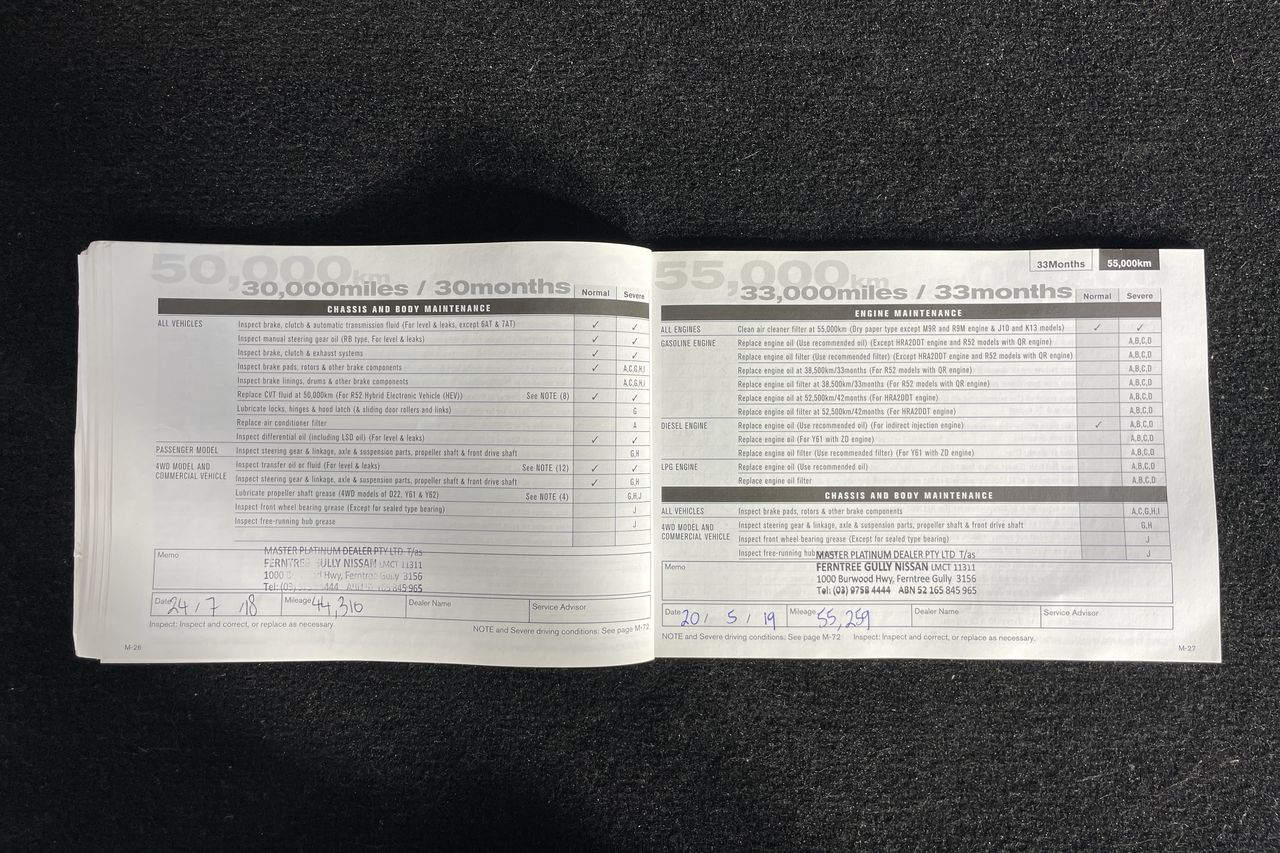 50,000km
30,000miles / 30months
Normal Severe
CHASSIS AND BODY MAINTENANCE
ALL VEHICLES Inspect brake, clutch & automatic transmission fluid (For level & leaks, except 6AT & 7AT) ✓ ✓
Inspect manual steering gear oil (RB type, For level & leaks) ✓ ✓
Inspect brake, clutch & exhaust systems ✓ ✓
Inspect brake pads, rotors & other brake components ✓ A,C,G,H,I
Inspect brake linings, drums & other brake components A,C,G,H,I
Replace CVT fluid at 50,000km (For R52 Hybrid Electronic Vehicle (HEV)) See NOTE (8) ✓ ✓
Lubricate locks, hinges & hood latch (& sliding door rollers and links) G
Replace air conditioner filter A
Inspect differential oil (including LSD oil) (For level & leaks) ✓ ✓
PASSENGER MODEL Inspect steering gear & linkage, axle & suspension parts, propeller shaft & front drive shaft G,H
4WD MODEL AND COMMERCIAL VEHICLE Inspect transfer oil or fluid (For level & leaks) See NOTE (12) ✓ ✓
Inspect steering gear & linkage, axle & suspension parts, propeller shaft & front drive shaft ✓ G,H
Lubricate propeller shaft grease (4WD models of D22, Y61 & Y62) See NOTE (4) G,H,J
Inspect front wheel bearing grease (Except for sealed type bearing) J
Inspect free-running hub grease J
Memo
MASTER PLATINUM DEALER PTY LTD T/as
FERNTREE GULLY NISSAN LMCT 11311
1000 Hwy, Ferntree Gully 3156
Tel: (03) 4444 ABN 52 165 845 965
Date 24 / 7 /18 Mileage 44,310 Dealer Name Service Advisor
Inspect: Inspect and correct, or replace as necessary. NOTE and Severe driving conditions: See page M-72
M-26
33Months 55,000km
55,000km
33,000miles / 33months
Normal Severe
ENGINE MAINTENANCE
ALL ENGINES Clean air cleaner filter at 55,000km (Dry paper type except M9R and R9M engine & J10 and K13 models) ✓ ✓
GASOLINE ENGINE Replace engine oil (Use recommended oil) (Except HRA2DDT engine and R52 models with QR engine) A,B,C,D
Replace engine oil filter (Use recommended filter) (Except HRA2DDT engine and R52 models with QR engine) A,B,C,D
Replace engine oil at 38,500km/33months (For R52 models with QR engine) A,B,C,D
Replace engine oil filter at 38,500km/33months (For R52 models with QR engine) A,B,C,D
Replace engine oil at 52,500km/42months (For HRA2DDT engine) A,B,C,D
Replace engine oil filter at 52,500km/42months (For HRA2DDT engine) A,B,C,D
DIESEL ENGINE Replace engine oil (Use recommended oil) (For indirect injection engine) ✓ A,B,C,D
Replace engine oil (For Y61 with ZD engine) A,B,C,D
Replace engine oil filter (Use recommended filter) (For Y61 with ZD engine) A,B,C,D
LPG ENGINE Replace engine oil (Use recommended oil) A,B,C,D
Replace engine oil filter A,B,C,D
CHASSIS AND BODY MAINTENANCE
ALL VEHICLES Inspect brake pads, rotors & other brake components A,C,G,H,I
4WD MODEL AND COMMERCIAL VEHICLE Inspect steering gear & linkage, axle & suspension parts, propeller shaft & front drive shaft G,H
Inspect front wheel bearing grease (Except for sealed type bearing) J
Inspect free-running hub J
Memo
MASTER PLATINUM DEALER PTY LTD T/as
FERNTREE GULLY NISSAN LMCT 11311
1000 Burwood Hwy, Ferntree Gully 3156
Tel: (03) 9758 4444 ABN 52 165 845 965
Date 20 / 5 / 19 Mileage 55,259 Dealer Name Service Advisor
NOTE and Severe driving conditions: See page M-72 Inspect: Inspect and correct, or replace as necessary.
M-27